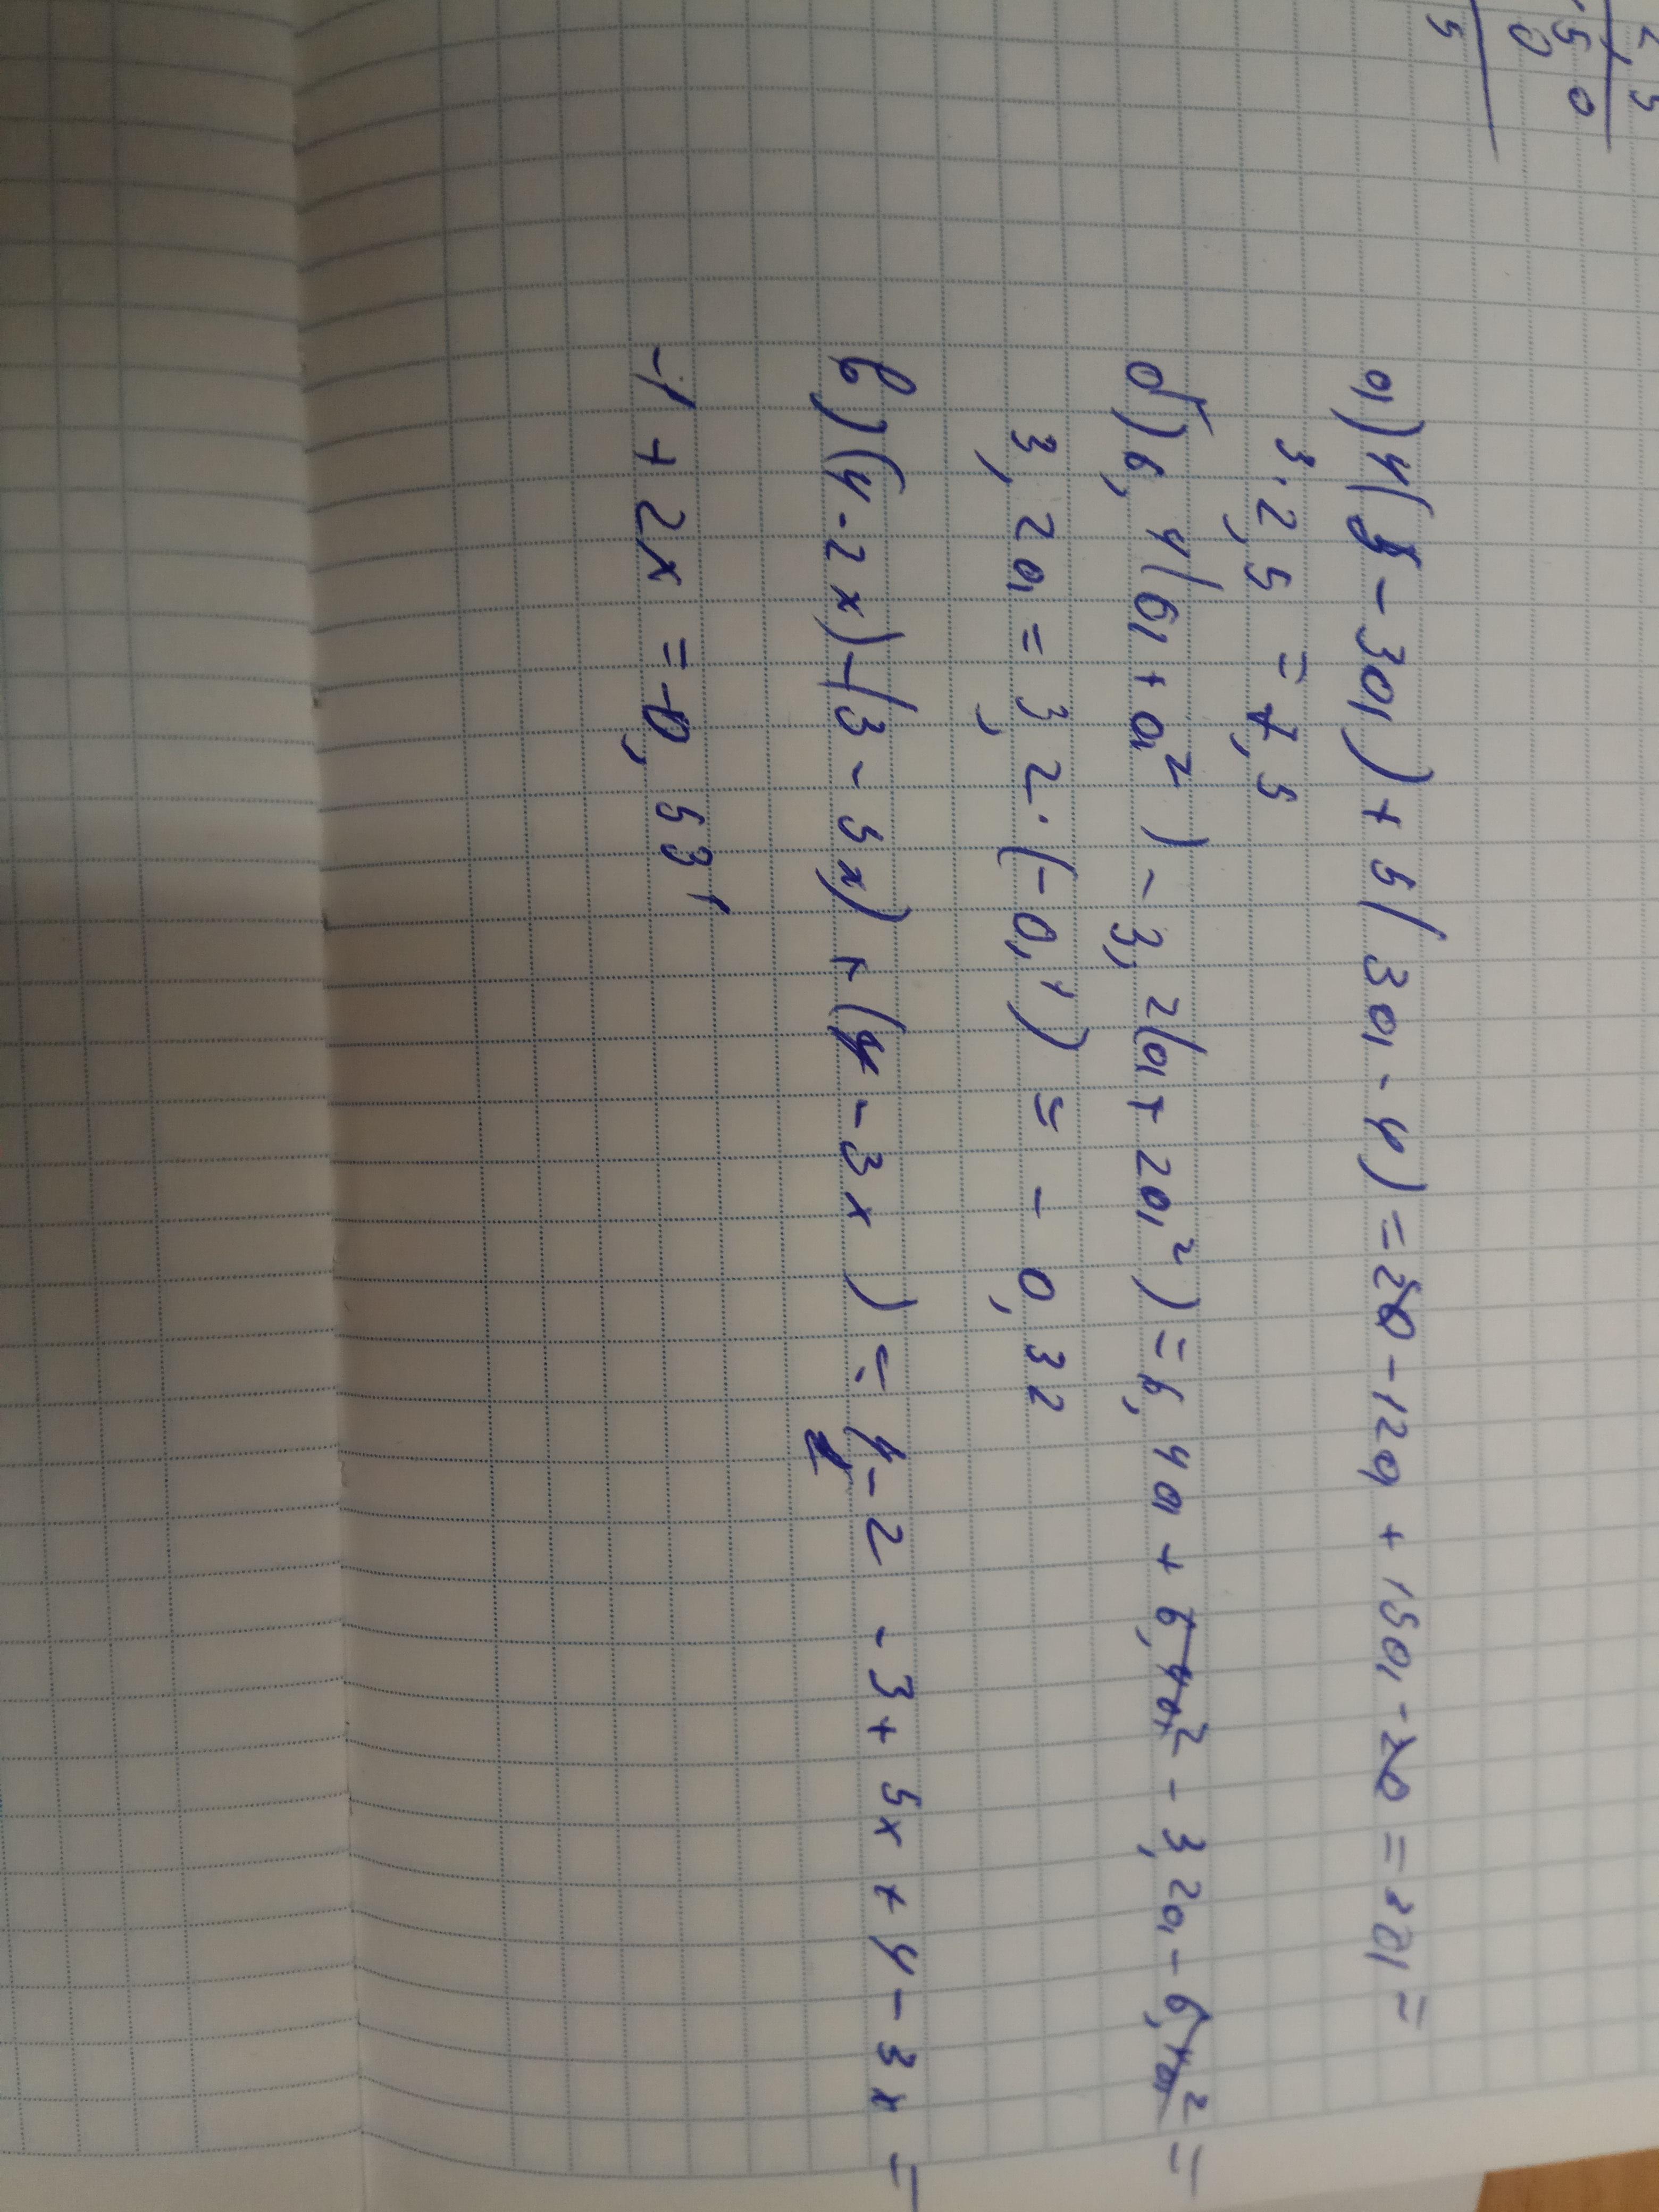 а) 4(5 - 3a) + 5(3a - 4) = 20 - 12a + 15a - 20 = 3a =
3·2,5 = 7,5
б) 6,4(a + a²) - 3,2(a + 2a²) = 6,4a + 6,4a² - 3,2a - 6,4a² =
3,2a = 3,2·(-0,1) = - 0,32
в) (4-2x)-(3-5x)+(4-3x) = 4-2 -3+5x+4-3x =
-1+2x = -0,531